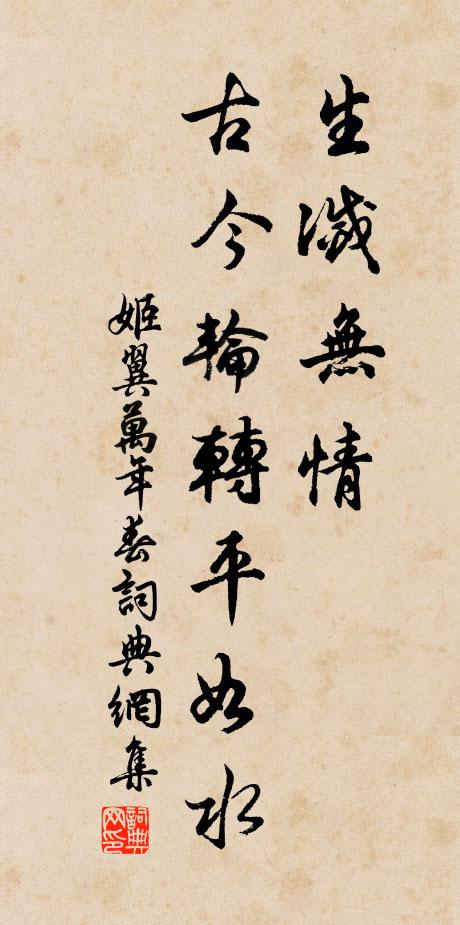 生滅無情
古今輪轉平如水
姬翼萬年春詞典網集
詞典網印